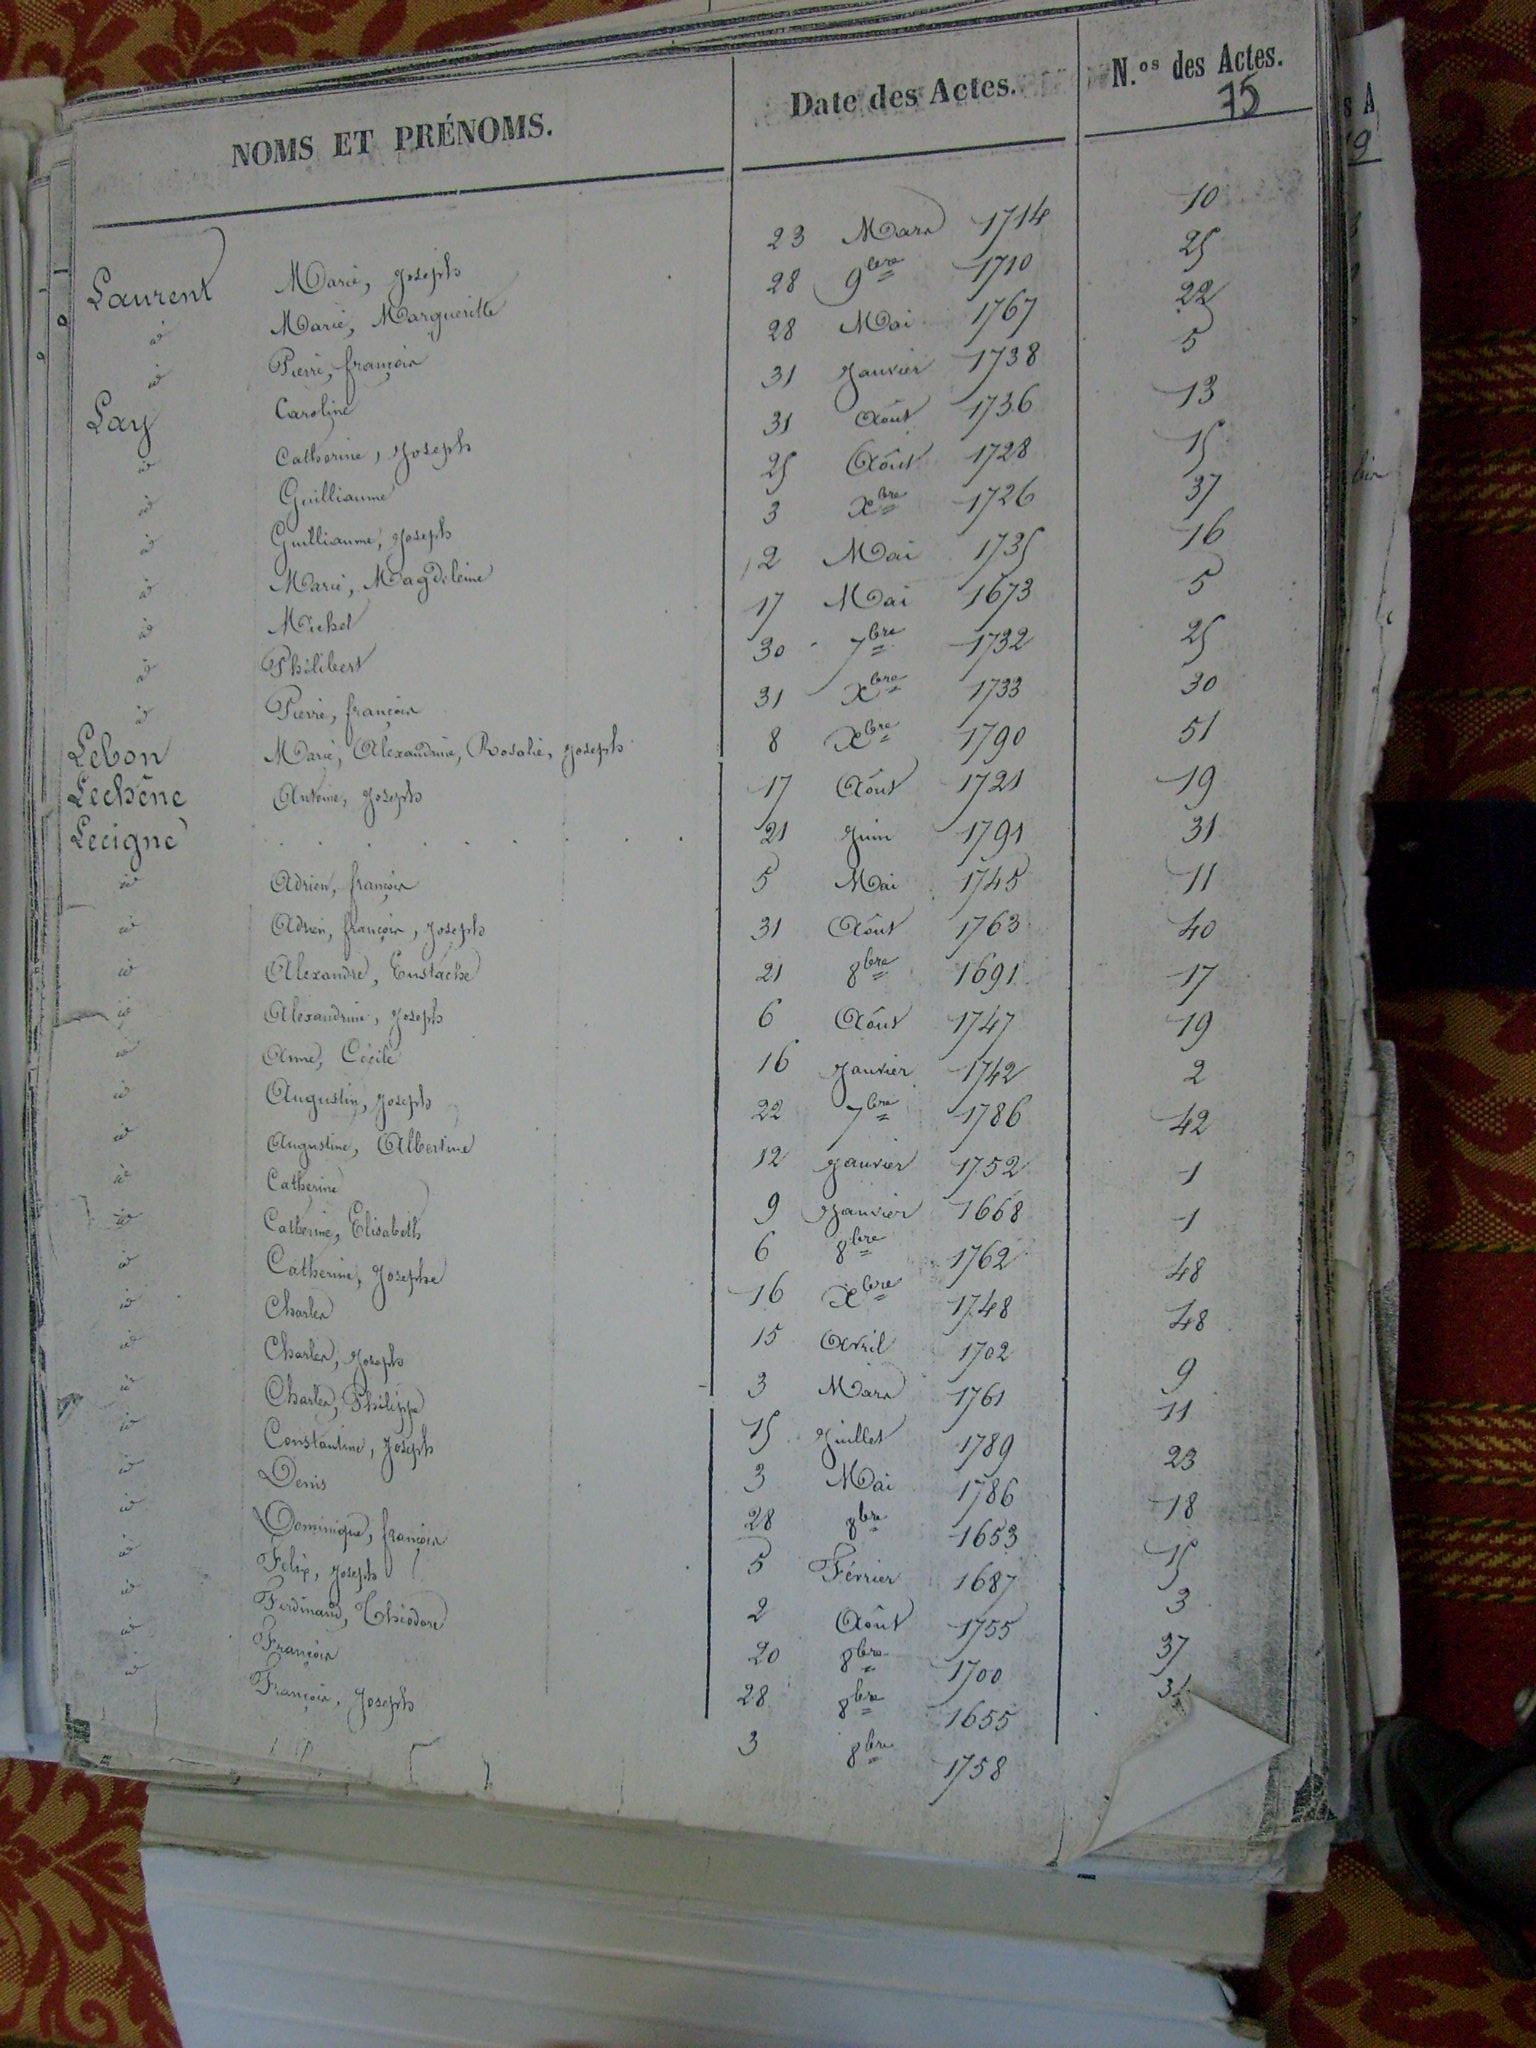 NOMS ET PRÉNOMS. Date des Actes. N.os des Actes.
75
Laurent Marie, Joseph 23 Mars 1714 10
id Marie, Margueritte 28 9bre 1710 25
id Pierre, françois 28 Mai 1767 22
Lay Caroline 31 Janvier 1738 5
id Catherine, Joseph 31 Août 1736 13
id Guilliaume 25 Août 1728 15
id Guilliaume, Joseph 3 Xbre 1726 37
id Marie, Magdeleine 12 Mai 1735 16
id Michel 17 Mai 1673 5
id Philibert 30 7bre 1732 25
id Pierre, françois 31 Xbre 1733 30
Lebon Marie, Alexandrine, Rosalie, Joseph 8 Xbre 1790 51
Lechêne Antoine, Joseph 17 Août 1721 19
Lecigne . . . . . . . . 21 Juin 1791 31
id Adrien, françois 5 Mai 1745 11
id Adrien, françois, Joseph 31 Août 1763 40
id Alexandre, Eustache 21 8bre 1691 17
id Alexandrine, Joseph 6 Août 1747 19
id Anne, Cécile 16 Janvier 1742 2
id Augustin, Joseph 22 7bre 1786 42
id Augustine, Albertine 12 Janvier 1752 1
id Catherine 9 Janvier 1668 1
id Catherine, Elisabeth 6 8bre 1762 48
id Catherine, Josephe 16 Xbre 1748 48
id Charles 15 Avril 1702 9
id Charles, Joseph 3 Mars 1761 11
id Charles, Philippe 15 Juillet 1789 23
id Constantine, Joseph 3 Mai 1786 18
id Denis 28 8bre 1653 15
id Dominique, françois 5 Février 1687 3
id Felix, Joseph 2 Août 1755 37
id Ferdinand, Théodore 20 8bre 1700
id François 28 8bre 1655
id François, Joseph 3 8bre 1758